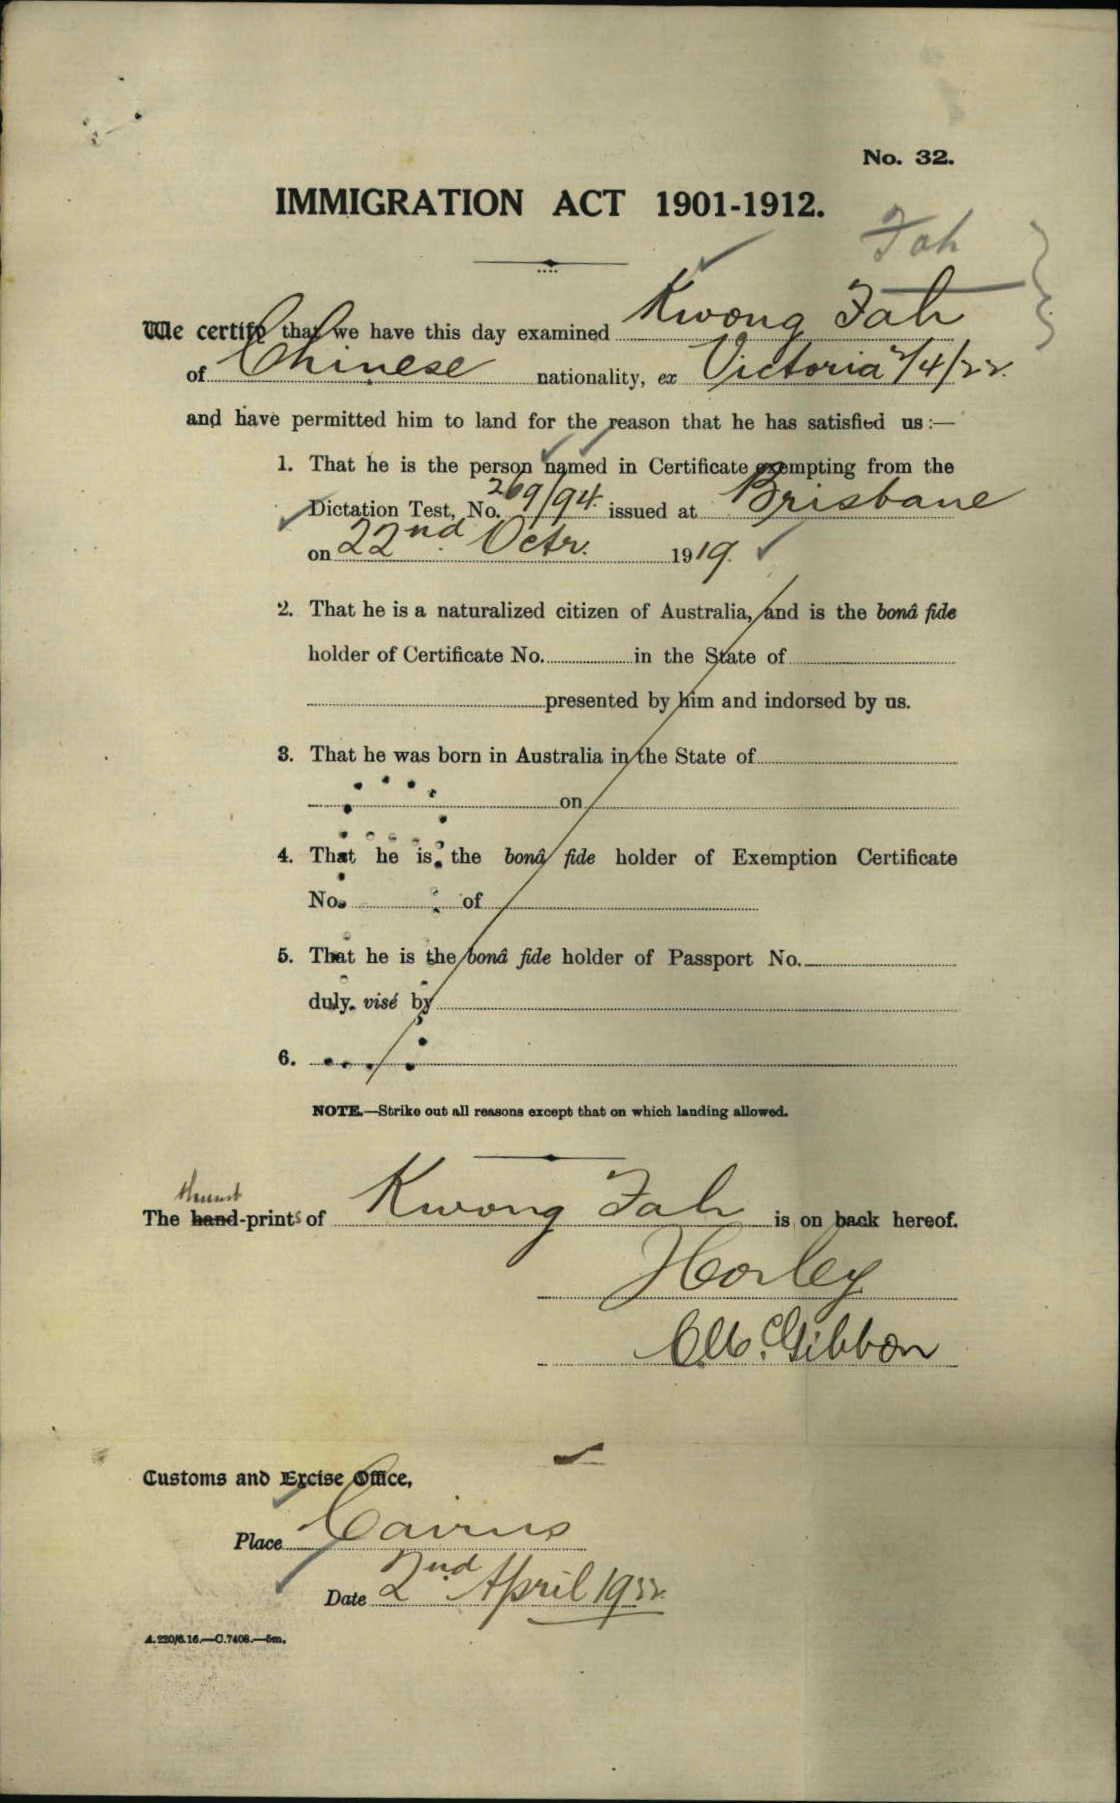 No. 32.
IMMIGRATION ACT 1901-1912.
Fah
We certify that we have this day examined Kwong Fah
of Chinese nationality, ex Victoria 2/4/22.
and have permitted him to land for the reason that he has satisfied us:—
1. That he is the person named in Certificate exempting from the
Dictation Test, No. 269/94 issued at Brisbane
on 22nd Octr. 1919.
2. That he is a naturalized citizen of Australia, and is the bonâ fide
holder of Certificate No. in the State of
presented by him and indorsed by us.
3. That he was born in Australia in the State of
on
4. That he is the bonâ fide holder of Exemption Certificate
No. of
5. That he is the bonâ fide holder of Passport No.
duly visé by
6.
NOTE.—Strike out all reasons except that on which landing allowed.
thumb
The hand-prints of Kwong Fah is on back hereof.
Horley
McGibbon
Customs and Excise Office,
Place Cairns
Date 2nd April 1922.
A.220/6.16.—C.7408.—5m.